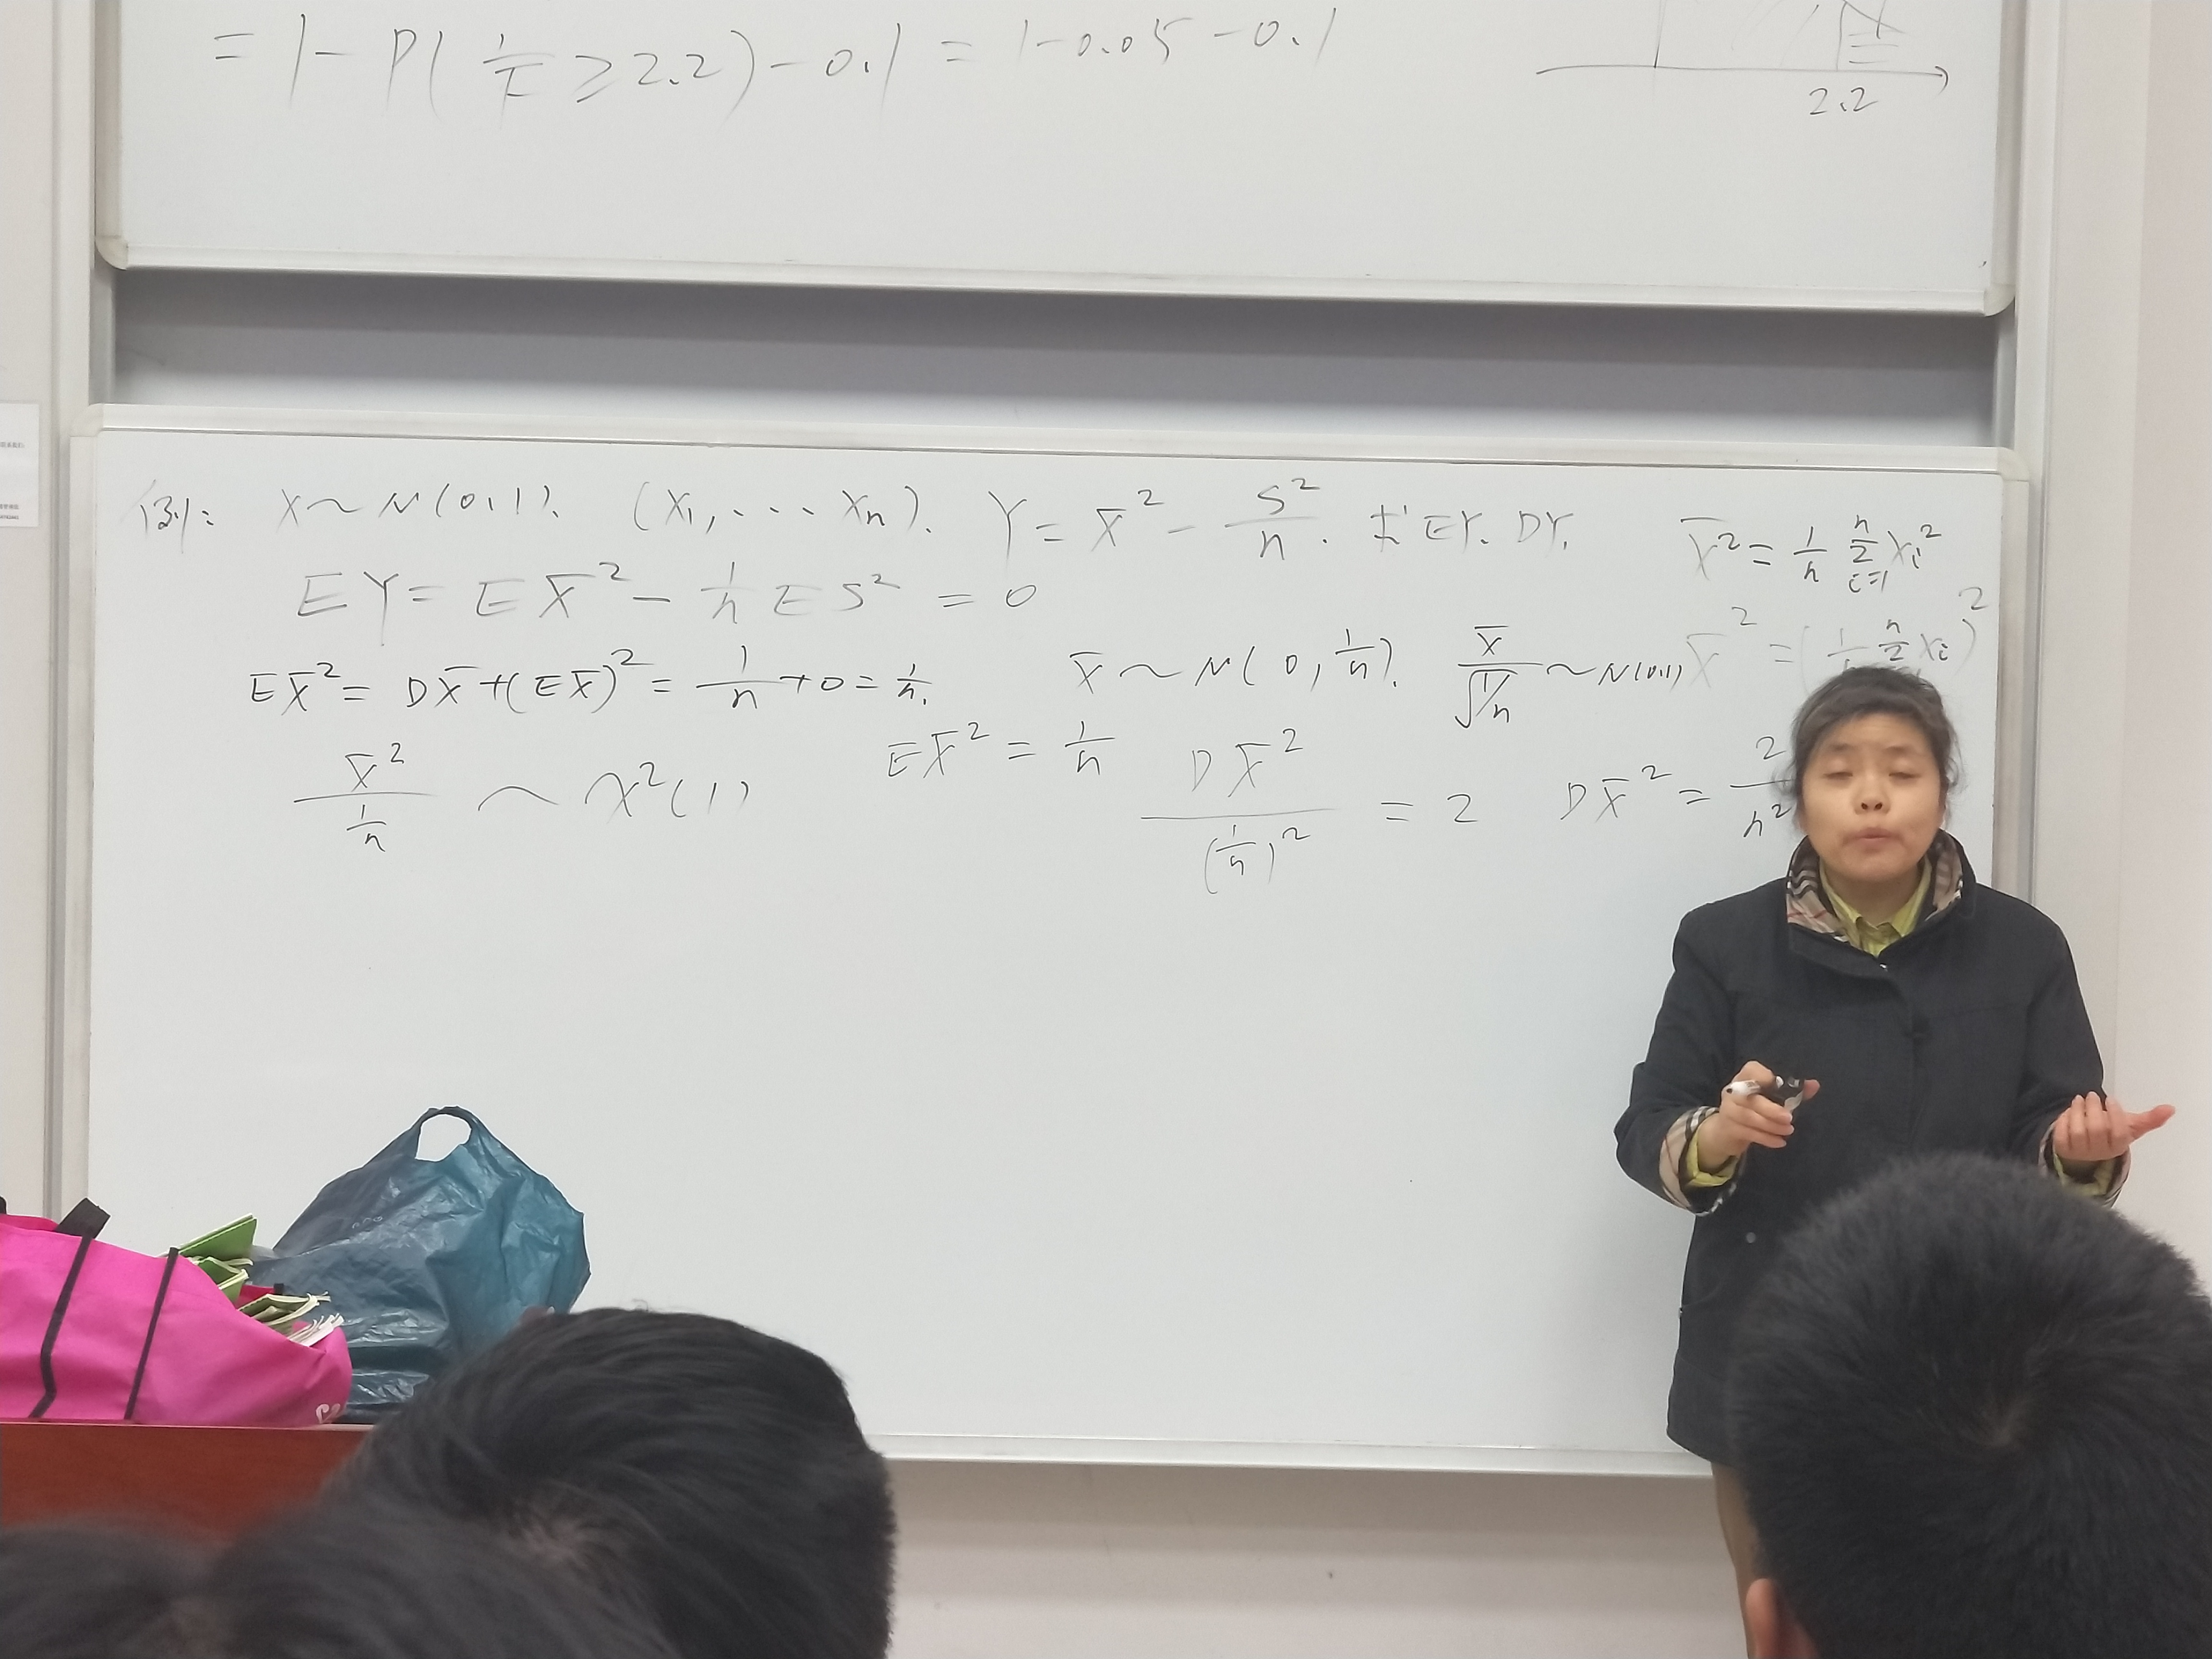 = 1 - P(1/F ≥ 2.2) - 0.1 = 1 - 0.05 - 0.1
2.2
例: X ~ N(0,1). (X₁, ··· Xn). Y = X̄² - S²/n. 求EY. DY.
\overline{X²} = 1/n Σ_{i=1}^{n} Xi²
EY = EX̄² - 1/n ES² = 0
X̄² = (1/n Σ^{n} Xi)²
EX̄² = DX̄ + (EX̄)² = 1/n + 0 = 1/n.
X̄ ~ N(0, 1/n). X̄/√(1/n) ~ N(0,1)
X̄²/(1/n) ~ χ²(1) EX̄² = 1/n DX̄²/(1/n)² = 2 DX̄² = 2/n²